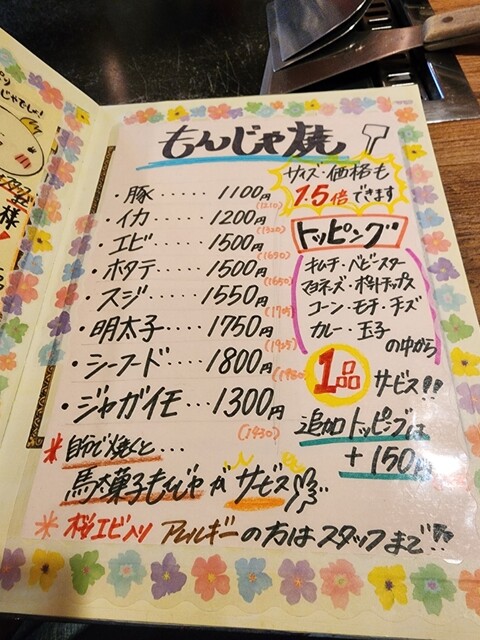 もんじゃ焼
サイズ・価格も
1.5倍できます
・豚‥‥‥1100円
(1210)
・イカ‥‥‥1200円
(1320)
・エビ‥‥‥1500円
(1650)
・ホタテ‥‥1500円
(1650)
・スジ‥‥‥1550円
(1705)
・明太子‥‥1750円
(1925)
・シーフード‥1800円
(1980)
・ジャガイモ‥1300円
(1430)
トッピング
キムチ・ベビースター
マヨネーズ・ポテトチップス
コーン・モチ・チーズ
カレー・玉子
の中から
1品サービス!!
追加トッピングは
+150円
*自分で焼くと…
駄菓子もんじゃがサービス
*桜エビ入り アレルギーの方はスタッフまで!!
様